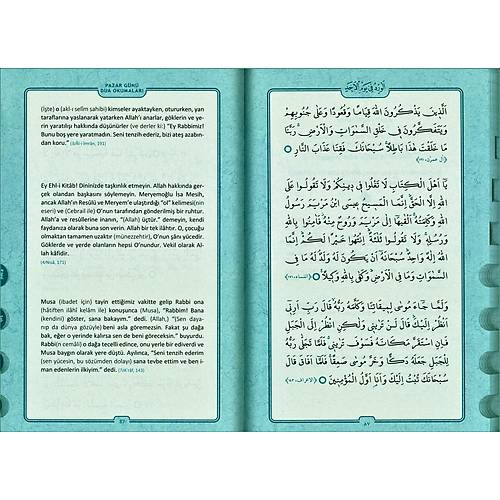 PAZAR GÜNÜ
DUA OKUMALARI
(İşte) o (akl-ı selîm sahibi) kimseler ayaktayken, otururken, yan
taraflarına yaslanarak yatarken Allah'ı anarlar, göklerin ve ye-
rin yaratılışı hakkında düşünürler (ve derler ki:) "Ey Rabbimiz!
Bunu boş yere yaratmadın. Seni tenzih ederiz, bizi ateş azabın-
dan koru." (Âl-i İmrân, 191)
Ey Ehl-i Kitâb! Dininizde taşkınlık etmeyin. Allah hakkında ger-
çek olandan başkasını söylemeyin. Meryemoğlu İsa Mesih,
ancak Allah'ın Resûlü ve Meryem'e ulaştırdığı "ol" kelimesi(nin
eseri) ve (Cebrail ile) O'nun tarafından gönderilmiş bir ruhtur.
Allah'a ve resûllerine inanın, "(Allah) üçtür." demeyin, kendi
faydanıza olarak buna son verin. Allah bir tek ilâhtır. O, çocuğu
olmaktan tamamen uzaktır (münezzehtir), O'nun şânı yücedir.
Göklerde ve yerde olanların hepsi O'nundur. Vekil olarak Al-
lah kâfidir.
(4/Nisâ, 171)
Musa (ibadet için) tayin ettiğimiz vakitte gelip Rabbi ona
(hâtiften ilâhî kelâm ile) konuşunca (Musa), "Rabbim! Bana
(kendini) göster, sana bakayım." dedi. (Allah,) "(Sen daya-
nıp da dünya gözüyle) beni asla göremezsin. Fakat şu dağa
bak, eğer o yerinde kalırsa sen de beni göreceksin." buyurdu.
Rabbi(n cemali) o dağa tecelli edince, onu yerle bir ediverdi ve
Musa baygın olarak yere düştü. Ayılınca, "Seni tenzih ederim
(sen yücesin, bu sözümden dolayı) sana tevbe ettim ve ben i-
man edenlerin ilkiyim." dedi. (7/A'râf, 143)
87
اَلَّذِينَ يَذْكُرُونَ اللّٰهَ قِيَامًا وَقُعُودًا وَعَلٰى جُنُوبِهِمْ
وَيَتَفَكَّرُونَ فِي خَلْقِ السَّمٰوَاتِ وَالْاَرْضِ رَبَّنَا
مَا خَلَقْتَ هٰذَا بَاطِلًا سُبْحَانَكَ فَقِنَا عَذَابَ النَّارِ
يَا اَهْلَ الْكِتَابِ لَا تَغْلُوا فِي دِينِكُمْ وَلَا تَقُولُوا عَلَى
اللّٰهِ اِلَّا الْحَقَّ اِنَّمَا الْمَسِيحُ عِيسَى ابْنُ مَرْيَمَ رَسُولُ
اللّٰهِ وَكَلِمَتُهُ اَلْقٰيهَا اِلٰى مَرْيَمَ وَرُوحٌ مِنْهُ فَاٰمِنُوا بِاللّٰهِ
وَرُسُلِهِ وَلَا تَقُولُوا ثَلٰثَةٌ اِنْتَهُوا خَيْرًا لَكُمْ اِنَّمَا
اللّٰهُ اِلٰهٌ وَاحِدٌ سُبْحَانَهُ اَنْ يَكُونَ لَهُ وَلَدٌ لَهُ مَا فِي
السَّمٰوَاتِ وَمَا فِي الْاَرْضِ وَكَفٰى بِاللّٰهِ وَكِيلًا
وَلَمَّا جَاءَ مُوسٰى لِمِيقَاتِنَا وَكَلَّمَهُ رَبُّهُ قَالَ رَبِّ اَرِنِي
اَنْظُرْ اِلَيْكَ قَالَ لَنْ تَرٰينِي وَلٰكِنِ انْظُرْ اِلَى الْجَبَلِ
فَاِنِ اسْتَقَرَّ مَكَانَهُ فَسَوْفَ تَرٰينِي فَلَمَّا تَجَلّٰى رَبُّهُ
لِلْجَبَلِ جَعَلَهُ دَكًّا وَخَرَّ مُوسٰى صَعِقًا فَلَمَّا اَفَاقَ قَالَ
سُبْحَانَكَ تُبْتُ اِلَيْكَ وَاَنَا اَوَّلُ الْمُؤْمِنِينَ
٨٧